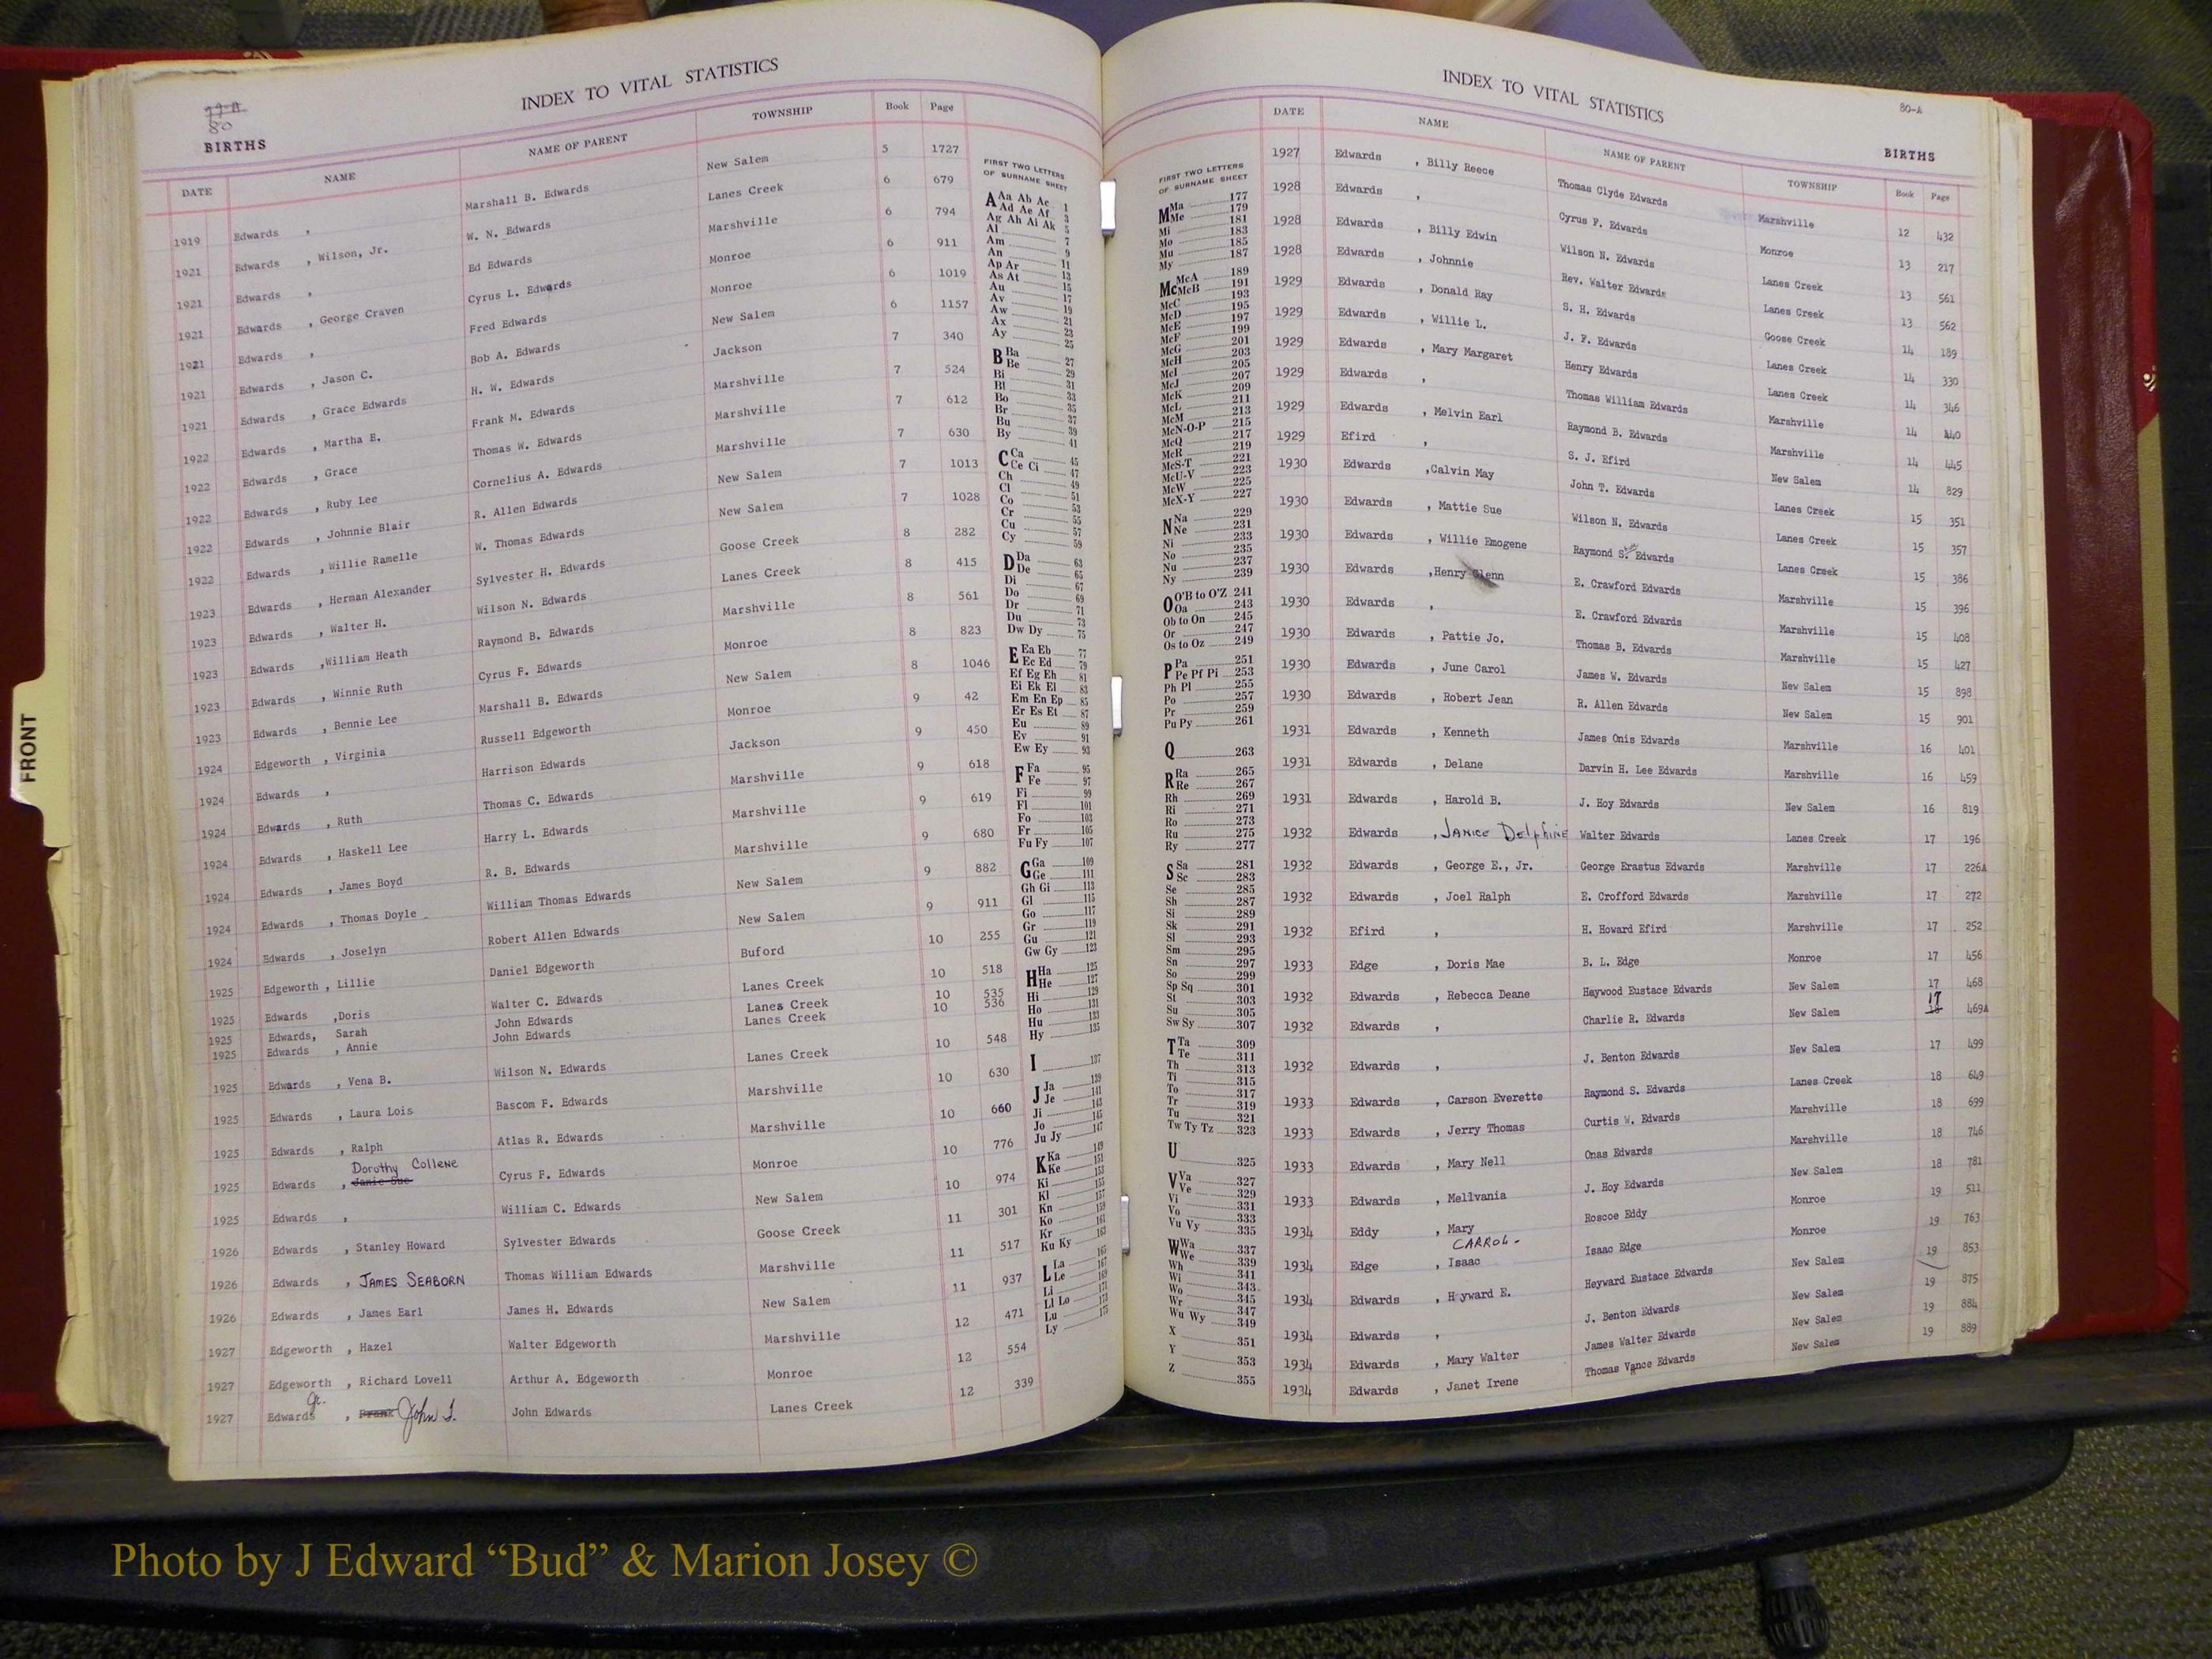 77-A
80
BIRTHS
INDEX TO VITAL STATISTICS
DATE NAME NAME OF PARENT TOWNSHIP Book Page
1919 Edwards , Marshall B. Edwards New Salem 5 1727
1921 Edwards , Wilson, Jr. W. N. Edwards Lanes Creek 6 679
1921 Edwards , Ed Edwards Marshville 6 794
1921 Edwards , George Craven Cyrus L. Edwards Monroe 6 911
1921 Edwards , Fred Edwards Monroe 6 1019
1921 Edwards , Jason C. Bob A. Edwards New Salem 6 1157
1921 Edwards , Grace Edwards H. W. Edwards Jackson 7 340
1922 Edwards , Martha E. Frank M. Edwards Marshville 7 524
1922 Edwards , Grace Thomas W. Edwards Marshville 7 612
1922 Edwards , Ruby Lee Cornelius A. Edwards Marshville 7 630
1922 Edwards , Johnnie Blair R. Allen Edwards New Salem 7 1013
1922 Edwards , Willie Ramelle W. Thomas Edwards New Salem 7 1028
1923 Edwards , Herman Alexander Sylvester H. Edwards Goose Creek 8 282
1923 Edwards , Walter H. Wilson N. Edwards Lanes Creek 8 415
1923 Edwards ,William Heath Raymond B. Edwards Marshville 8 561
1923 Edwards , Winnie Ruth Cyrus F. Edwards Monroe 8 823
1923 Edwards , Bennie Lee Marshall B. Edwards New Salem 8 1046
1924 Edgeworth , Virginia Russell Edgeworth Monroe 9 42
1924 Edwards , Harrison Edwards Jackson 9 450
1924 Edwards , Ruth Thomas C. Edwards Marshville 9 618
1924 Edwards , Haskell Lee Harry L. Edwards Marshville 9 619
1924 Edwards , James Boyd R. B. Edwards Marshville 9 680
1924 Edwards , Thomas Doyle William Thomas Edwards New Salem 9 882
1924 Edwards , Joselyn Robert Allen Edwards New Salem 9 911
1925 Edgeworth , Lillie Daniel Edgeworth Buford 10 255
1925 Edwards ,Doris Walter C. Edwards Lanes Creek 10 518
1925 Edwards, Sarah John Edwards Lanes Creek 10 535
1925 Edwards , Annie John Edwards Lanes Creek 10 536
1925 Edwards , Vena B. Wilson N. Edwards Lanes Creek 10 548
1925 Edwards , Laura Lois Bascom F. Edwards Marshville 10 630
1925 Edwards , Ralph Atlas R. Edwards Marshville 10 660
Dorothy Collene
1925 Edwards , Janie Sue Cyrus F. Edwards Monroe 10 776
1925 Edwards , William C. Edwards New Salem 10 974
1926 Edwards , Stanley Howard Sylvester Edwards Goose Creek 11 301
1926 Edwards , JAMES SEABORN Thomas William Edwards Marshville 11 517
1926 Edwards , James Earl James H. Edwards New Salem 11 937
1927 Edgeworth , Hazel Walter Edgeworth Marshville 12 471
1927 Edgeworth , Richard Lovell Arthur A. Edgeworth Monroe 12 554
Jr.
1927 Edwards , Frank John I. John Edwards Lanes Creek 12 339
FRONT
FIRST TWO LETTERS
OF SURNAME SHEET
A Aa Ab Ac 1
Ad Ae Af 3
Ag Ah Ai Ak 5
Al 7
Am 9
An 11
Ap Ar 13
As At 15
Au 17
Av 19
Aw 21
Ax 23
Ay 25
B Ba 27
Be 29
Bi 31
Bl 33
Bo 35
Br 37
Bu 39
By 41
C Ca 45
Ce Ci 47
Ch 49
Cl 51
Co 53
Cr 55
Cu 57
Cy 59
D Da 63
De 65
Di 67
Do 69
Dr 71
Du 73
Dw Dy 75
E Ea Eb 77
Ec Ed 79
Ef Eg Eh 81
Ei Ek El 83
Em En Ep 85
Er Es Et 87
Eu 89
Ev 91
Ew Ey 93
F Fa 95
Fe 97
Fi 99
Fl 101
Fo 103
Fr 105
Fu Fy 107
G Ga 109
Ge 111
Gh Gi 113
Gl 115
Go 117
Gr 119
Gu 121
Gw Gy 123
H Ha 125
He 127
Hi 129
Ho 131
Hu 133
Hy 135
I 137
J Ja 139
Je 141
Ji 143
Jo 145
Ju Jy 147
K Ka 149
Ke 151
Ki 153
Kl 155
Kn 157
Ko 159
Kr 161
Ku Ky 163
L La 165
Le 167
Li 169
Ll Lo 171
Lu 173
Ly 175
INDEX TO VITAL STATISTICS
80-A
BIRTHS
FIRST TWO LETTERS
OF SURNAME SHEET
M Ma 177
Me 179
Mi 181
Mo 183
Mu 185
My 187
Mc McA 189
McB 191
McC 193
McD 195
McE 197
McF 199
McG 201
McH 203
McI 205
McJ 207
McK 209
McL 211
McM 213
McN-O-P 215
McQ 217
McR 219
McS-T 221
McU-V 223
McW 225
McX-Y 227
N Na 229
Ne 231
Ni 233
No 235
Nu 237
Ny 239
O O'B to O'Z 241
Oa 243
Ob to On 245
Or 247
Os to Oz 249
P Pa 251
Pe Pf Pi 253
Ph Pl 255
Po 257
Pr 259
Pu Py 261
Q 263
R Ra 265
Re 267
Rh 269
Ri 271
Ro 273
Ru 275
Ry 277
S Sa 281
Sc 283
Se 285
Sh 287
Si 289
Sk 291
Sl 293
Sm 295
Sn 297
So 299
Sp Sq 301
St 303
Su 305
Sw Sy 307
T Ta 309
Te 311
Th 313
Ti 315
To 317
Tr 319
Tu 321
Tw Ty Tz 323
U 325
V Va 327
Ve 329
Vi 331
Vo 333
Vu Vy 335
W Wa 337
We 339
Wh 341
Wi 343
Wo 345
Wr 347
Wu Wy 349
X 351
Y 353
Z 355
DATE NAME NAME OF PARENT TOWNSHIP Book Page
1927 Edwards , Billy Reece Thomas Clyde Edwards Marshville 12 432
1928 Edwards , Cyrus F. Edwards Monroe 13 217
1928 Edwards , Billy Edwin Wilson N. Edwards Lanes Creek 13 561
1928 Edwards , Johnnie Rev. Walter Edwards Lanes Creek 13 562
1929 Edwards , Donald Ray S. H. Edwards Goose Creek 14 189
1929 Edwards , Willie L. J. F. Edwards Lanes Creek 14 330
1929 Edwards , Mary Margaret Henry Edwards Lanes Creek 14 346
1929 Edwards , Thomas William Edwards Marshville 14 440
1929 Edwards , Melvin Earl Raymond B. Edwards Marshville 14 445
1929 Efird , S. J. Efird New Salem 14 829
1930 Edwards ,Calvin May John T. Edwards Lanes Creek 15 351
1930 Edwards , Mattie Sue Wilson N. Edwards Lanes Creek 15 357
1930 Edwards , Willie Emogene Raymond S. Edwards Lanes Creek 15 386
1930 Edwards ,Henry Glenn E. Crawford Edwards Marshville 15 396
1930 Edwards , E. Crawford Edwards Marshville 15 408
1930 Edwards , Pattie Jo. Thomas B. Edwards Marshville 15 427
1930 Edwards , June Carol James W. Edwards New Salem 15 898
1930 Edwards , Robert Jean R. Allen Edwards New Salem 15 901
1931 Edwards , Kenneth James Onis Edwards Marshville 16 401
1931 Edwards , Delane Darvin H. Lee Edwards Marshville 16 459
1931 Edwards , Harold B. J. Hoy Edwards New Salem 16 819
1932 Edwards , JANICE Delphine Walter Edwards Lanes Creek 17 196
1932 Edwards , George E., Jr. George Erastus Edwards Marshville 17 226A
1932 Edwards , Joel Ralph E. Crofford Edwards Marshville 17 272
1932 Efird , H. Howard Efird Marshville 17 252
1933 Edge , Doris Mae B. L. Edge Monroe 17 456
1932 Edwards , Rebecca Deane Haywood Eustace Edwards New Salem 17 468
1932 Edwards , Charlie R. Edwards New Salem 17 469A
1932 Edwards , J. Benton Edwards New Salem 17 499
1933 Edwards , Carson Everette Raymond S. Edwards Lanes Creek 18 649
1933 Edwards , Jerry Thomas Curtis W. Edwards Marshville 18 699
1933 Edwards , Mary Nell Onas Edwards Marshville 18 746
1933 Edwards , Mellvania J. Hoy Edwards New Salem 18 781
1934 Eddy , Mary CARROL- Roscoe Eddy Monroe 19 511
1934 Edge , Isaac Isaac Edge Monroe 19 763
1934 Edwards , Hayward E. Heyward Eustace Edwards New Salem 19 853
1934 Edwards , J. Benton Edwards New Salem 19 875
1934 Edwards , Mary Walter James Walter Edwards New Salem 19 884
1934 Edwards , Janet Irene Thomas Vance Edwards New Salem 19 889
Photo by J Edward “Bud” & Marion Josey ©